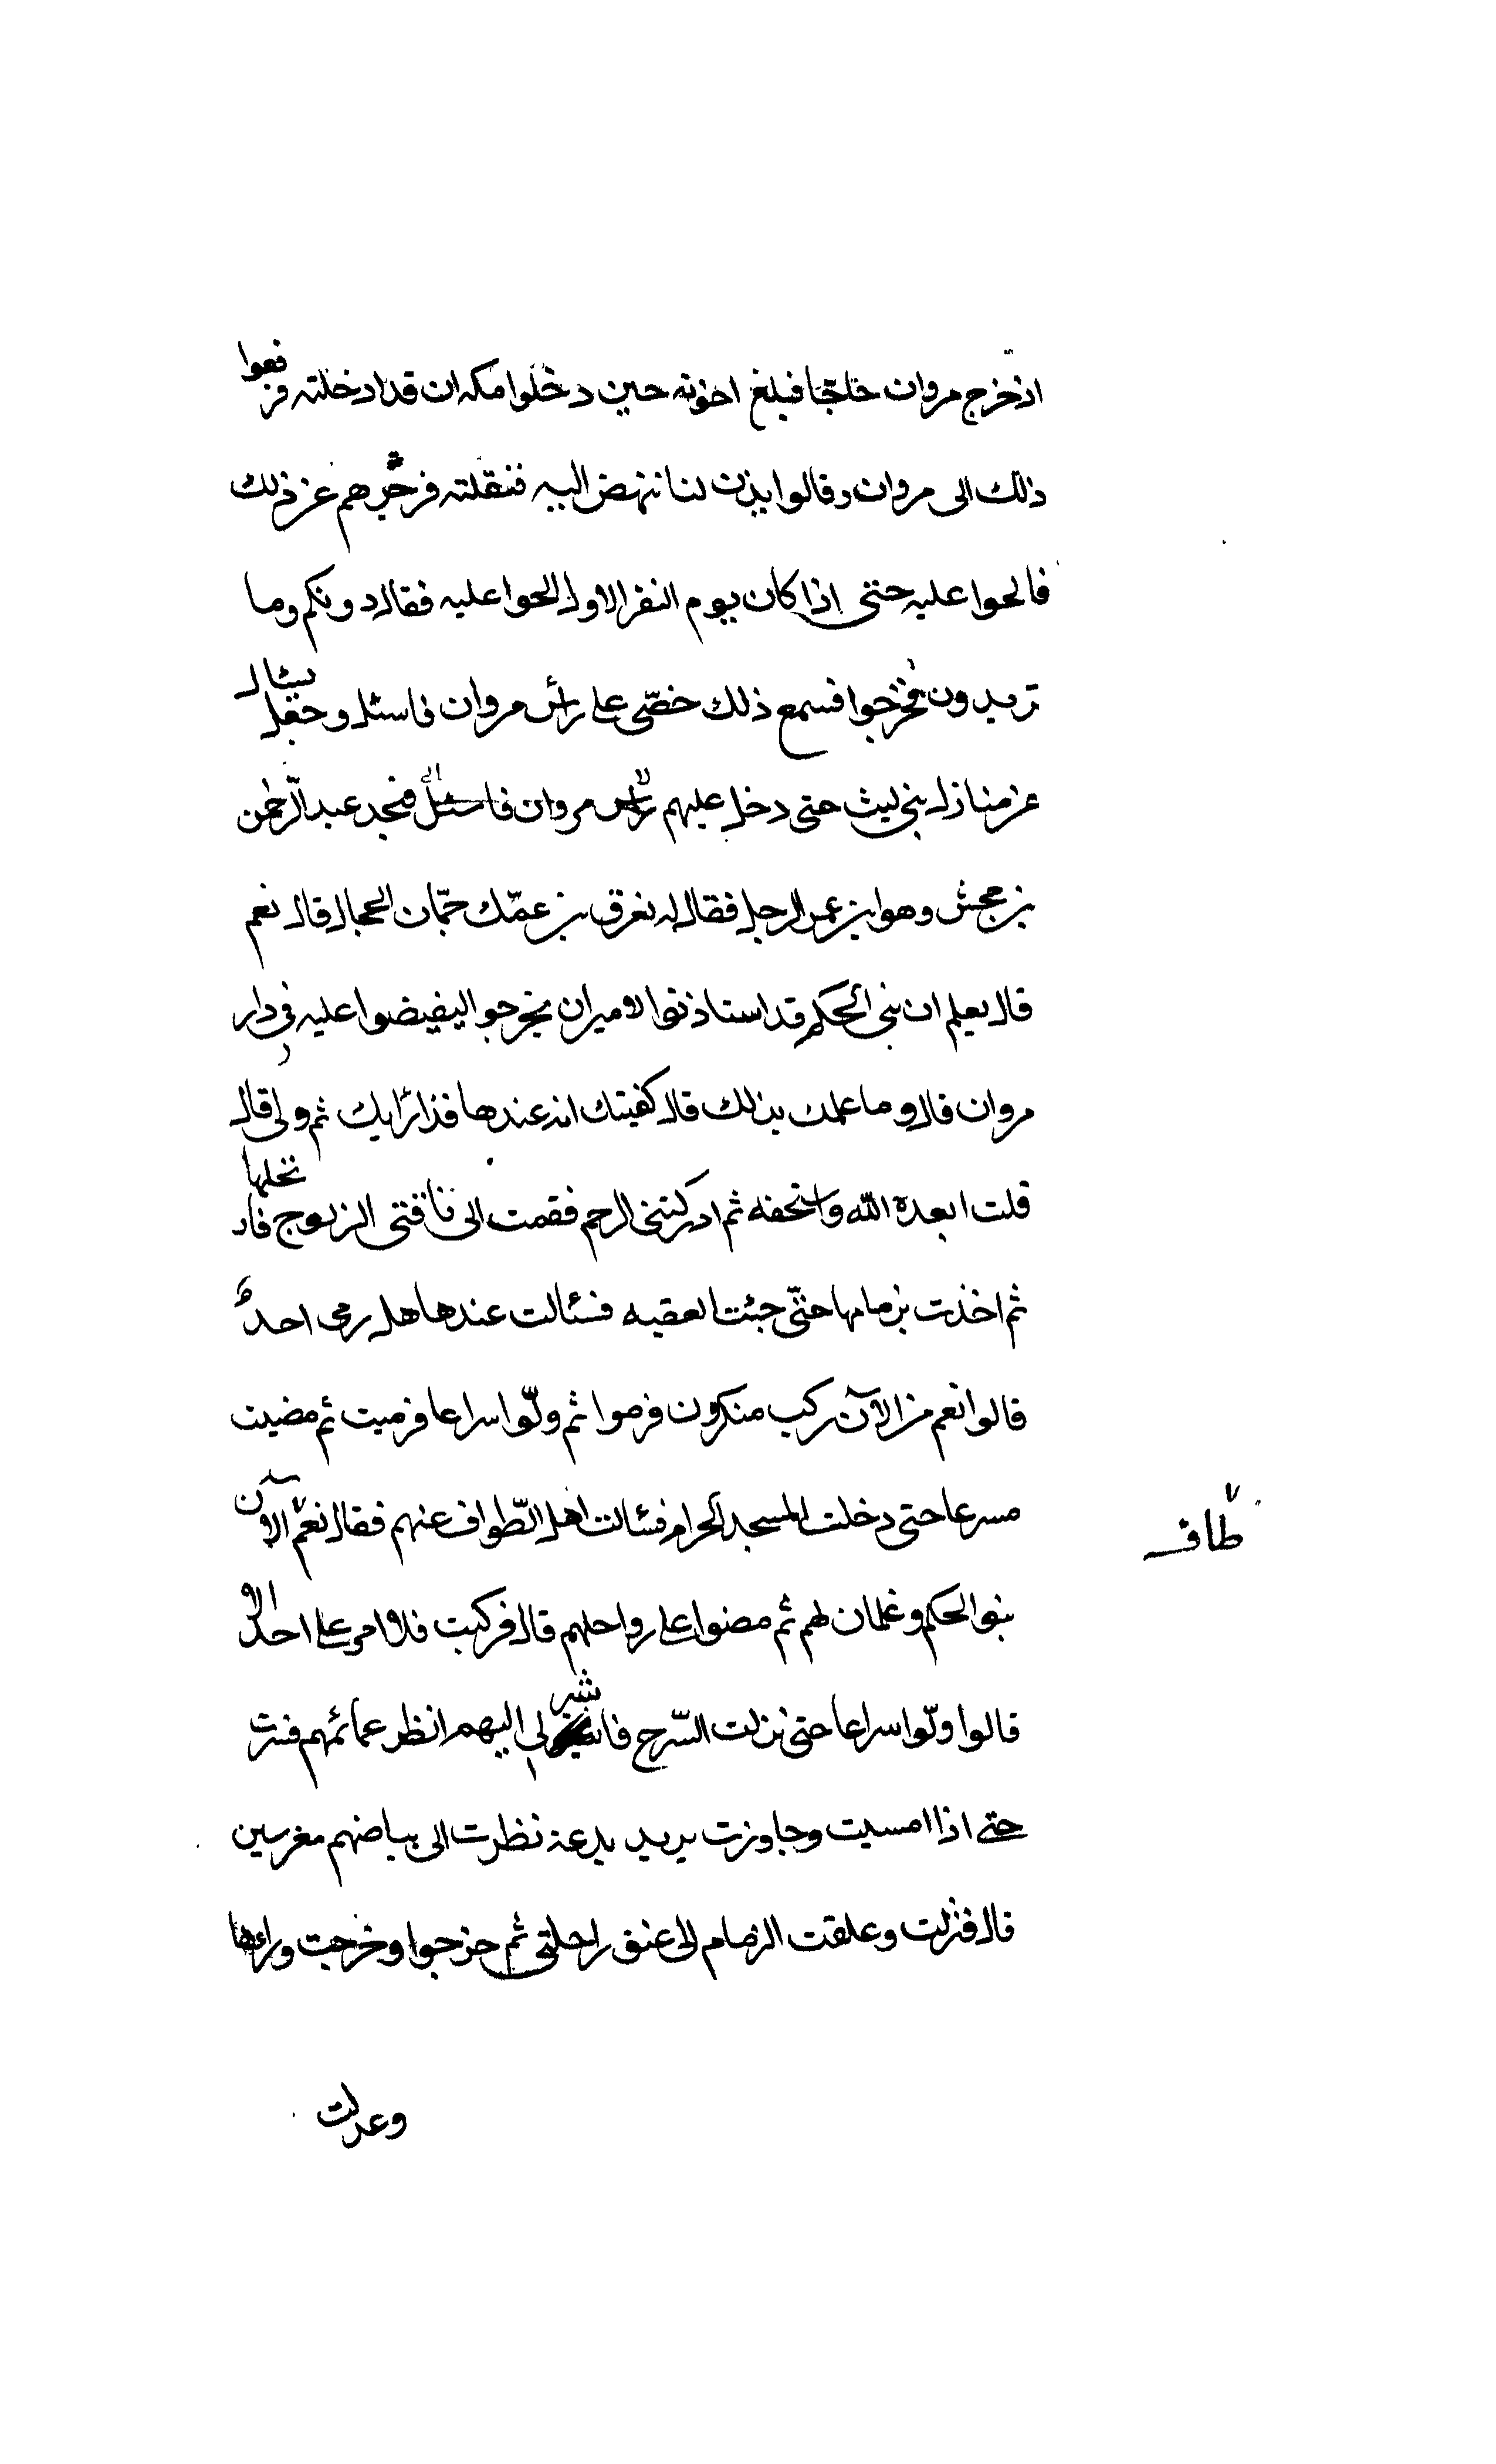 اذ خرج مروان حاجا فبلغ اخوته حين دخلوا مكه ان قد ادخلته فرفعوا
ذلك الى مروان وقالوا يذن لنا ننهض اليه فنقلته فزجرهم عن ذلك
فالحوا عليه حتى اذا كان يوم النفر الاول الحوا عليه فقال دونكم وما
تريدون فخرجوا فسمع ذلك خصّى على رأس مروان فاستل وجعل يسئال
عن منازل بنى ليث حتى دخل عليهم راس مروان فاستل فنجد عبد الرّحمن
بن جحش وهو ابن عم الرجل فقال له نعرف بن عمّك حمّان الحجال قال نعم
قال يعلم ان بنى الحكم قد استاذنوا الامير ان يخرجوا ليفيضوا عليه فى دار
مروان قال وما علمك بذلك قال كفيتك انه عندها فذا رايك ثم ولى قال
قلت ابعده الله واسخفه ثم ادركتنى الرحم فقمت الى ناقتى الزلوج فارتحلها
ثم اخذت بزمامها حتّى جئت العقبه فسئالت عندها هل رمى احدٌ
قالوا نعم من الآن ركب منكرون فرموا ثم ولّوا سراعا فرميت ثم مضيت
مسرعا حتى دخلت المسجد الحرام فسئالت اهل الطّواف عنهم فقال نعم الآن
طاف
بنو الحكم وغلمان لهم ثم مضوا على رواحلهم قال فركبت فلا امر على احد الا
قالوا ولّوا سراعا حتى نزلت السّرح فاشير لى اليهم انظر عمائمهم فسرت
حتى اذا امسيت وجاوزت بريد بدعة نظرت الى بياضهم مغرسين
قال فنزلت وعلقت الزمام الى عنق راحلتى ثم خرجوا وخرجت وراءها
وعدلت